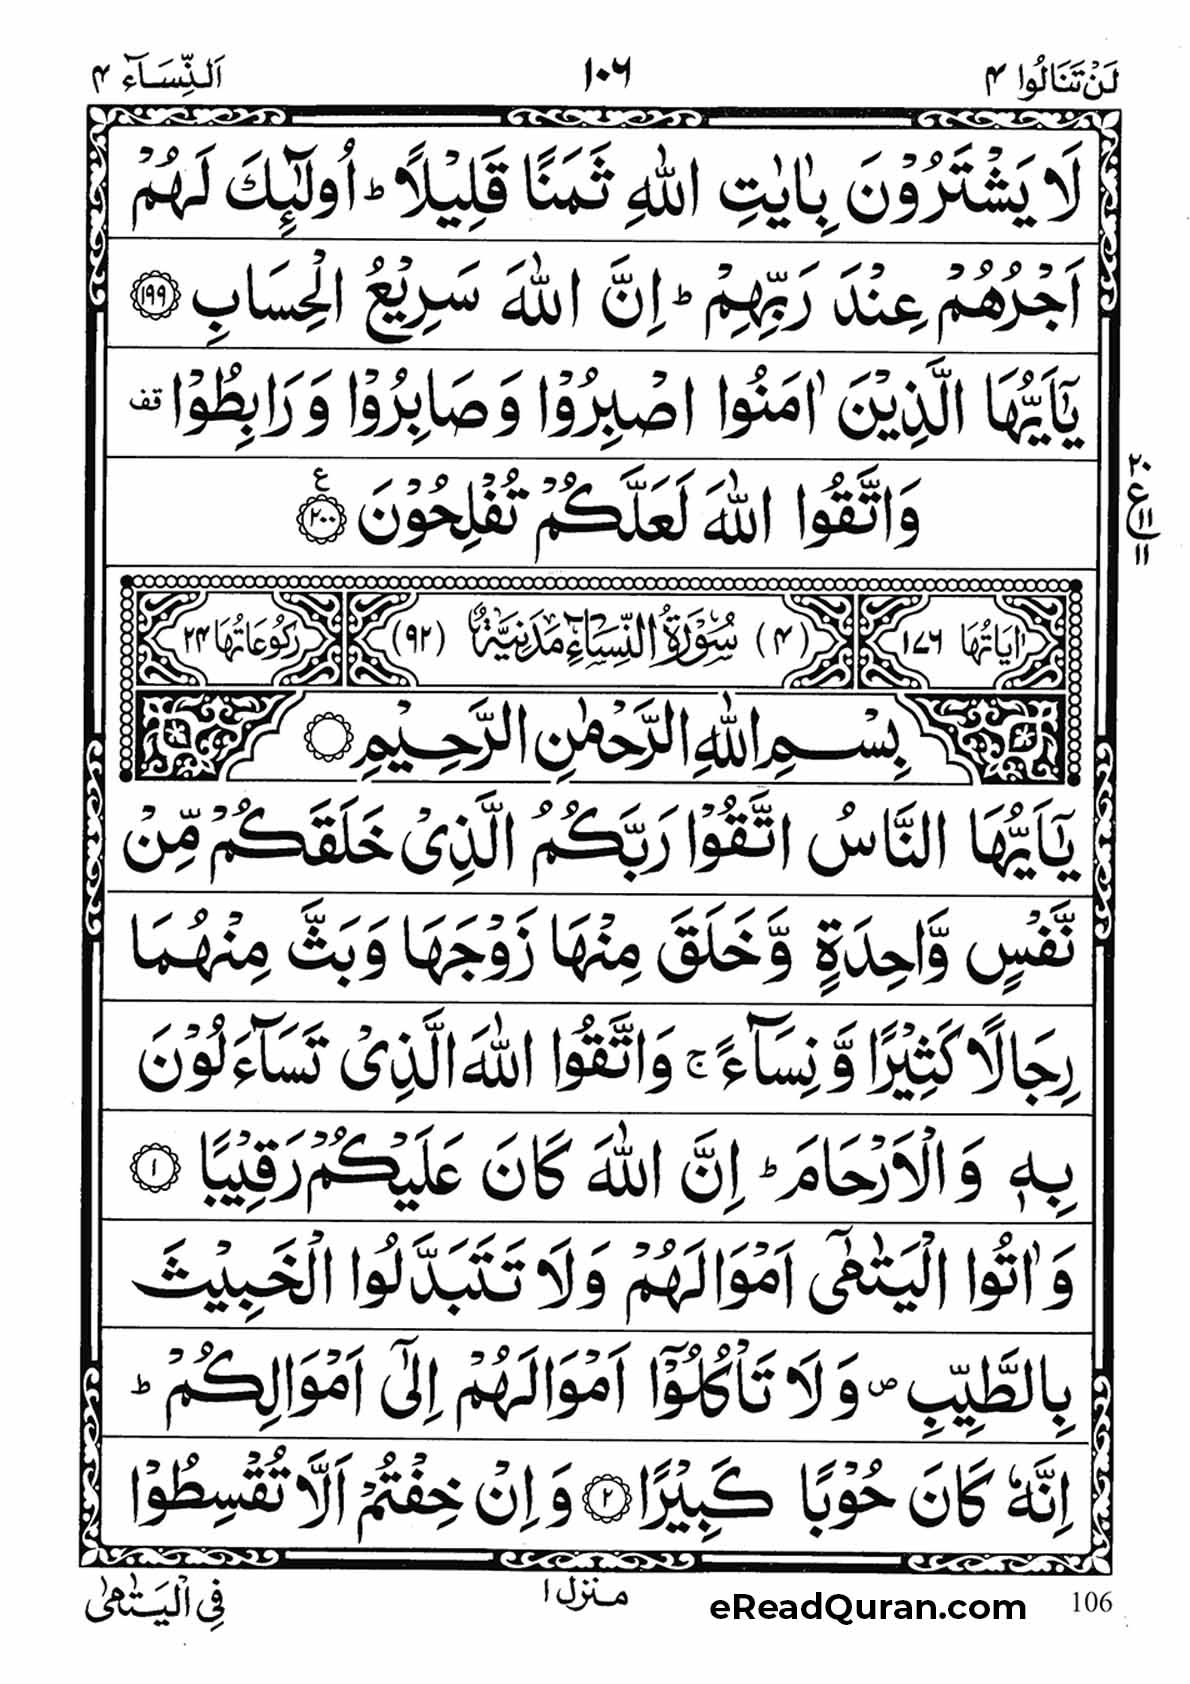 لَنْ تَنَالُوا ۴ ۱۰۶ اَلنِّسَآء ۴
لَا يَشْتَرُوْنَ بِاٰيٰتِ اللّٰهِ ثَمَنًا قَلِيْلًا ؕ اُولٰٓئِكَ لَهُمْ
اَجْرُهُمْ عِنْدَ رَبِّهِمْ ؕ اِنَّ اللّٰهَ سَرِيْعُ الْحِسَابِ ﴿۱۹۹﴾
يٰٓاَيُّهَا الَّذِيْنَ اٰمَنُوا اصْبِرُوْا وَصَابِرُوْا وَرَابِطُوْا قف
وَاتَّقُوا اللّٰهَ لَعَلَّكُمْ تُفْلِحُوْنَ ﴿۲۰۰﴾ ع
۲۰
ع
۱۱
۱۱
اٰيَاتُهَا ۱۷۶ (۴) سُوْرَةُ النِّسَآءِ مَدَنِيَّةٌ (۹۲) رَكُوْعَاتُهَا ۲۴
بِسْمِ اللّٰهِ الرَّحْمٰنِ الرَّحِيْمِ
يٰٓاَيُّهَا النَّاسُ اتَّقُوْا رَبَّكُمُ الَّذِيْ خَلَقَكُمْ مِّنْ
نَّفْسٍ وَّاحِدَةٍ وَّخَلَقَ مِنْهَا زَوْجَهَا وَبَثَّ مِنْهُمَا
رِجَالًا كَثِيْرًا وَّنِسَآءً ۚ وَاتَّقُوا اللّٰهَ الَّذِيْ تَسَآءَلُوْنَ
بِهٖ وَالْاَرْحَامَ ؕ اِنَّ اللّٰهَ كَانَ عَلَيْكُمْ رَقِيْبًا ﴿۱﴾
وَاٰتُوا الْيَتٰمٰٓى اَمْوَالَهُمْ وَلَا تَتَبَدَّلُوا الْخَبِيْثَ
بِالطَّيِّبِ ۪ وَلَا تَاْكُلُوْٓا اَمْوَالَهُمْ اِلٰٓى اَمْوَالِكُمْ ؕ
اِنَّهٗ كَانَ حُوْبًا كَبِيْرًا ﴿۲﴾ وَاِنْ خِفْتُمْ اَلَّا تُقْسِطُوْا
فِي الْيَتٰمٰى
منزل ۱
eReadQuran.com 106